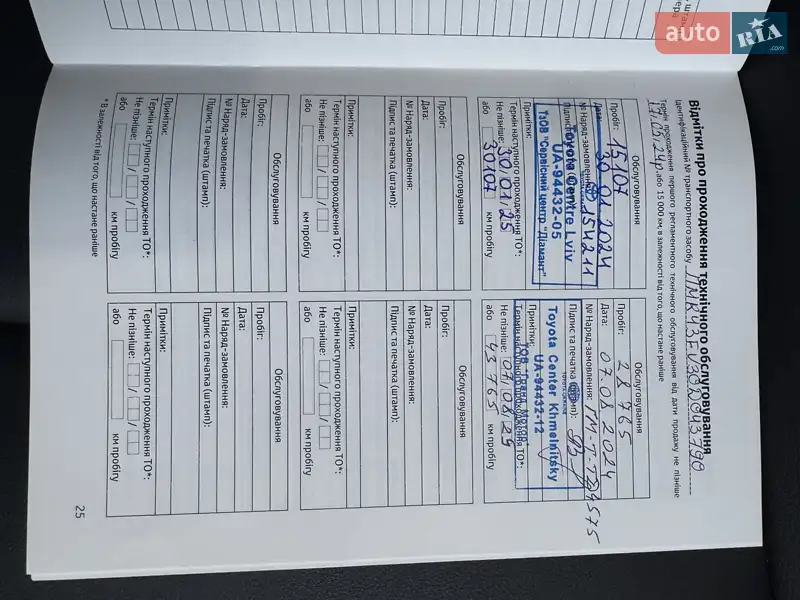 auto RIA.com
Відмітки про проходження технічного обслуговування
Ідентифікаційний № транспортного засобу
Термін проходження першого регламентного технічного обслуговування від дати продажу не пізніше
17.03.24р. або 15 000 км, в залежності від того, що настане раніше
Обслуговування
Пробіг: 15107
Дата: 30 01 2024
№ Наряд-замовлення: 154211
Підпис та печатка
Toyota Centre Lviv
UA-94432-05
ТзОВ "Сервісний центр "Діамант"
Примітки:
Термін наступного проходження ТО*:
Не пізніше: 30/01/25
або 30107 км пробігу
Обслуговування
Пробіг: 28765
Дата: 07.08 2024
№ Наряд-замовлення:
Підпис та печатка
Toyota Center Khmelnitsky
UA-94432-12
ТОВ "Гранд Мотор"
Примітки:
Термін наступного проходження ТО*:
Не пізніше: 07/08/25
або 43765 км пробігу
Обслуговування
Пробіг:
Дата:
№ Наряд-замовлення:
Підпис та печатка (штамп):
Примітки:
Термін наступного проходження ТО*:
Не пізніше: / /
або км пробігу
Обслуговування
Пробіг:
Дата:
№ Наряд-замовлення:
Підпис та печатка (штамп):
Примітки:
Термін наступного проходження ТО*:
Не пізніше: / /
або км пробігу
Обслуговування
Пробіг:
Дата:
№ Наряд-замовлення:
Підпис та печатка (штамп):
Примітки:
Термін наступного проходження ТО*:
Не пізніше: / /
або км пробігу
Обслуговування
Пробіг:
Дата:
№ Наряд-замовлення:
Підпис та печатка (штамп):
Примітки:
Термін наступного проходження ТО*:
Не пізніше: / /
або км пробігу
* В залежності від того, що настане раніше
25